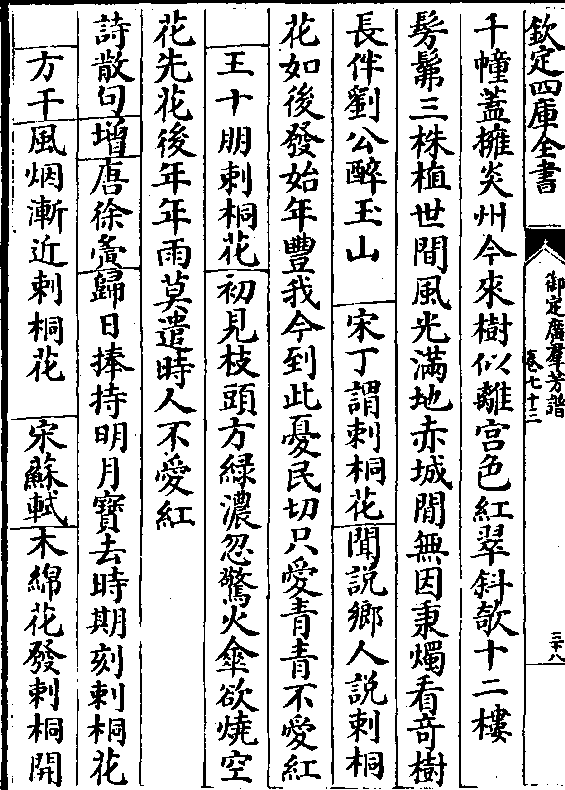 欽定四庫全書
御定廣羣芳譜
卷七十三
三十八
千幢蓋擁炎州今來樹似離宮色紅翠斜欹十二樓
髣髴三株植世間風光滿地赤城閒無因秉燭看竒樹
長伴劉公醉玉山 宋丁謂刺桐花聞說鄉人說刺桐
花如後發始年豐我今到此憂民切只愛青青不愛紅
王十朋刺桐花初見枝頭方綠濃忽驚火傘欲燒空
花先花後年年雨莫遣時人不愛紅
詩散句增唐徐夤歸日捧持明月寶去時期刻刺桐花
方干風烟漸近刺桐花 宋蘇軾木綿花發刺桐開